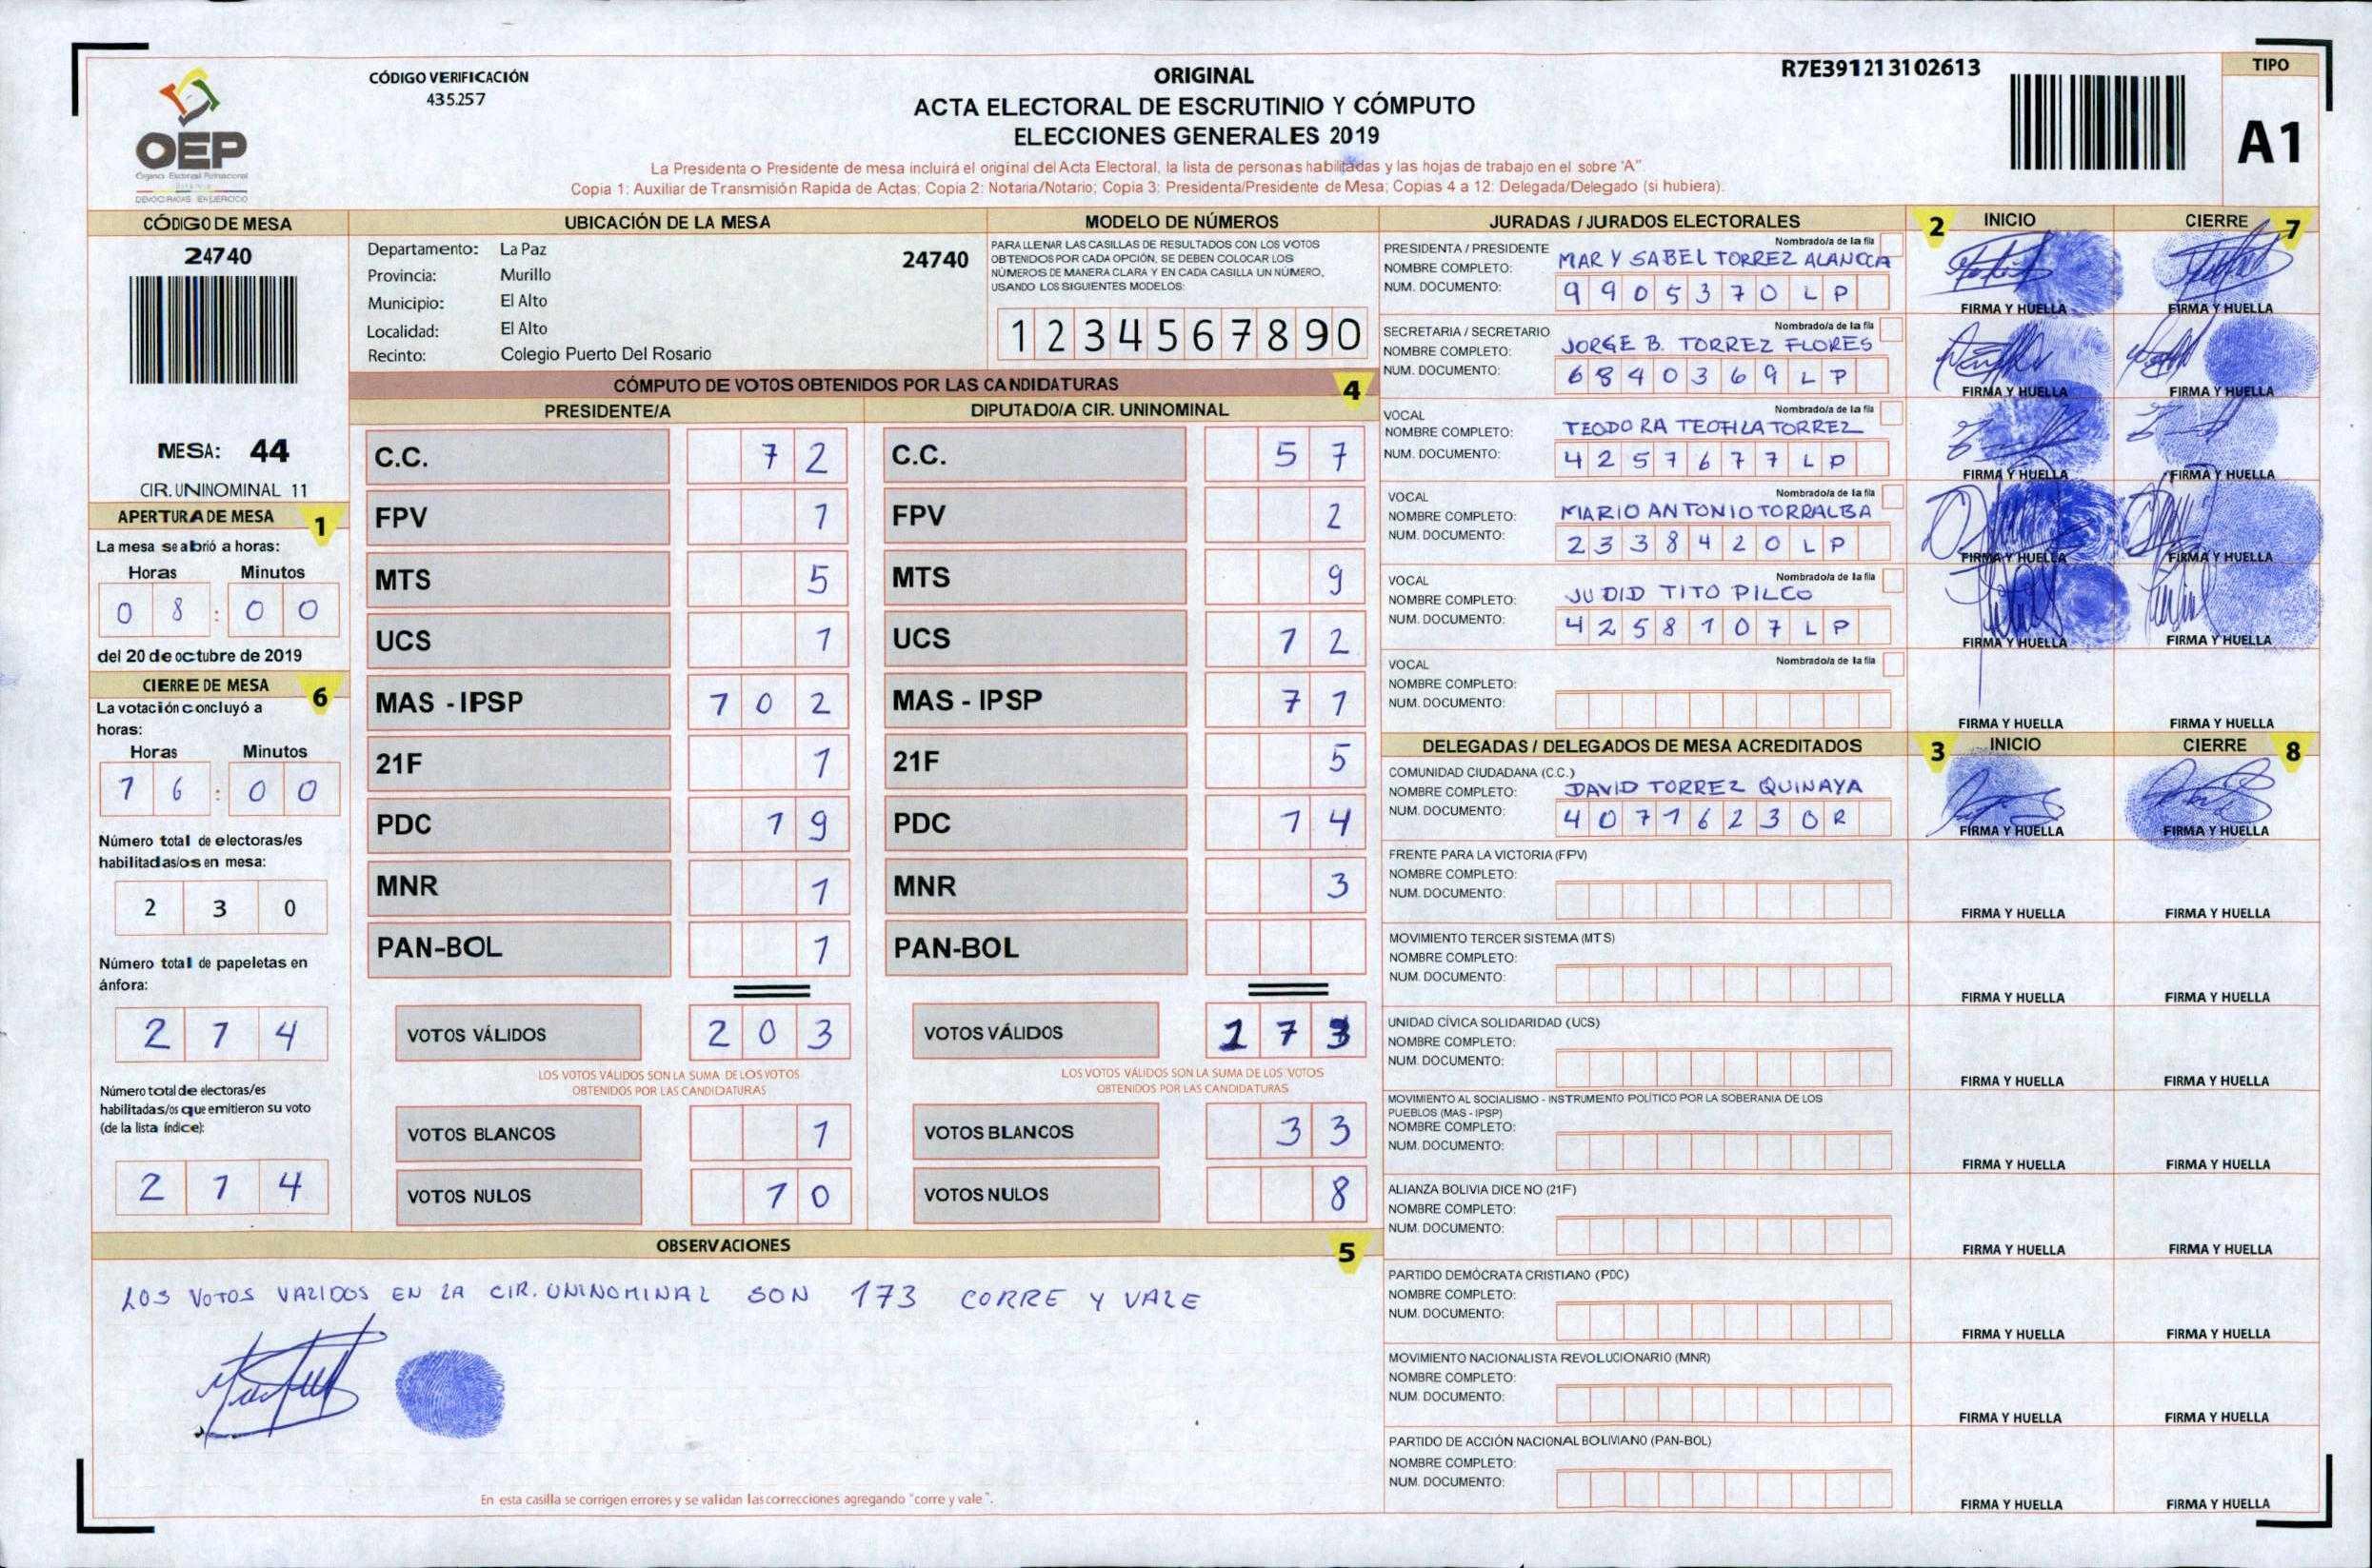 CÓDIGO VERIFICACIÓN
435257
ORIGINAL
ACTA ELECTORAL DE ESCRUTINIO Y CÓMPUTO
ELECCIONES GENERALES 2019
La Presidenta o Presidente de mesa incluirá el original del Acta Electoral, la lista de personas habilitadas y las hojas de trabajo en el sobre "A".
Copia 1: Auxiliar de Transmisión Rapida de Actas; Copia 2: Notaria/Notario; Copia 3: Presidenta/Presidente de Mesa; Copias 4 a 12: Delegada/Delegado (si hubiera).
R7E391213102613
TIPO
A1
OEP
CÓDIGO DE MESA
24740
MESA: 44
CIR. UNINOMINAL 11
APERTURA DE MESA 1
La mesa se abrió a horas:
Horas Minutos
0 8 : 0 0
del 20 de octubre de 2019
CIERRE DE MESA 6
La votación concluyó a
horas:
Horas Minutos
1 6 : 0 0
Número total de electoras/es
habilitadas/os en mesa:
2 3 0
Número total de papeletas en
ánfora:
2 1 4
Número total de electoras/es
habilitadas/os que emitieron su voto
(de la lista índice):
2 1 4
UBICACIÓN DE LA MESA
Departamento: La Paz 24740
Provincia: Murillo
Municipio: El Alto
Localidad: El Alto
Recinto: Colegio Puerto Del Rosario
MODELO DE NÚMEROS
PARA LLENAR LAS CASILLAS DE RESULTADOS CON LOS VOTOS
OBTENIDOS POR CADA OPCIÓN, SE DEBEN COLOCAR LOS
NÚMEROS DE MANERA CLARA Y EN CADA CASILLA UN NÚMERO,
USANDO LOS SIGUIENTES MODELOS:
1 2 3 4 5 6 7 8 9 0
CÓMPUTO DE VOTOS OBTENIDOS POR LAS CANDIDATURAS 4
PRESIDENTE/A DIPUTADO/A CIR. UNINOMINAL
C.C. 7 2 C.C. 5 7
FPV 1 FPV 2
MTS 5 MTS 9
UCS 1 UCS 1 2
MAS - IPSP 1 0 2 MAS - IPSP 7 1
21F 1 21F 5
PDC 1 9 PDC 1 4
MNR 1 MNR 3
PAN-BOL 1 PAN-BOL
VOTOS VÁLIDOS 2 0 3 VOTOS VÁLIDOS 1 7 3
LOS VOTOS VÁLIDOS SON LA SUMA DE LOS VOTOS LOS VOTOS VÁLIDOS SON LA SUMA DE LOS VOTOS
OBTENIDOS POR LAS CANDIDATURAS OBTENIDOS POR LAS CANDIDATURAS
VOTOS BLANCOS 1 VOTOS BLANCOS 3 3
VOTOS NULOS 1 0 VOTOS NULOS 8
OBSERVACIONES 5
LOS VOTOS VALIDOS EN LA CIR. UNINOMINAL SON 173 CORRE Y VALE
En esta casilla se corrigen errores y se validan las correcciones agregando "corre y vale".
JURADAS / JURADOS ELECTORALES 2 INICIO CIERRE 7
PRESIDENTA / PRESIDENTE Nombrado/a de la fila
NOMBRE COMPLETO: MARY SABEL TORREZ ALANOCA
NUM. DOCUMENTO: 9 9 0 5 3 7 0 L P
FIRMA Y HUELLA FIRMA Y HUELLA
SECRETARIA / SECRETARIO Nombrado/a de la fila
NOMBRE COMPLETO: JORGE B. TORREZ FLORES
NUM. DOCUMENTO: 6 8 4 0 3 6 9 L P
FIRMA Y HUELLA FIRMA Y HUELLA
VOCAL Nombrado/a de la fila
NOMBRE COMPLETO: TEODORA TEOFILA TORREZ
NUM. DOCUMENTO: 4 2 5 7 6 7 7 L P
FIRMA Y HUELLA FIRMA Y HUELLA
VOCAL Nombrado/a de la fila
NOMBRE COMPLETO: MARIO ANTONIO TORRALBA
NUM. DOCUMENTO: 2 3 3 8 4 2 0 L P
FIRMA Y HUELLA FIRMA Y HUELLA
VOCAL Nombrado/a de la fila
NOMBRE COMPLETO: JUDID TITO PILCO
NUM. DOCUMENTO: 4 2 5 8 1 0 7 L P
FIRMA Y HUELLA FIRMA Y HUELLA
VOCAL Nombrado/a de la fila
NOMBRE COMPLETO:
NUM. DOCUMENTO:
FIRMA Y HUELLA FIRMA Y HUELLA
DELEGADAS / DELEGADOS DE MESA ACREDITADOS 3 INICIO CIERRE 8
COMUNIDAD CIUDADANA (C.C.)
NOMBRE COMPLETO: DAVID TORREZ QUINAYA
NUM. DOCUMENTO: 4 0 7 1 6 2 3 O R
FIRMA Y HUELLA FIRMA Y HUELLA
FRENTE PARA LA VICTORIA (FPV)
NOMBRE COMPLETO:
NUM. DOCUMENTO:
FIRMA Y HUELLA FIRMA Y HUELLA
MOVIMIENTO TERCER SISTEMA (MTS)
NOMBRE COMPLETO:
NUM. DOCUMENTO:
FIRMA Y HUELLA FIRMA Y HUELLA
UNIDAD CÍVICA SOLIDARIDAD (UCS)
NOMBRE COMPLETO:
NUM. DOCUMENTO:
FIRMA Y HUELLA FIRMA Y HUELLA
MOVIMIENTO AL SOCIALISMO - INSTRUMENTO POLÍTICO POR LA SOBERANIA DE LOS
PUEBLOS (MAS - IPSP)
NOMBRE COMPLETO:
NUM. DOCUMENTO:
FIRMA Y HUELLA FIRMA Y HUELLA
ALIANZA BOLIVIA DICE NO (21F)
NOMBRE COMPLETO:
NUM. DOCUMENTO:
FIRMA Y HUELLA FIRMA Y HUELLA
PARTIDO DEMÓCRATA CRISTIANO (PDC)
NOMBRE COMPLETO:
NUM. DOCUMENTO:
FIRMA Y HUELLA FIRMA Y HUELLA
MOVIMIENTO NACIONALISTA REVOLUCIONARIO (MNR)
NOMBRE COMPLETO:
NUM. DOCUMENTO:
FIRMA Y HUELLA FIRMA Y HUELLA
PARTIDO DE ACCIÓN NACIONAL BOLIVIANO (PAN-BOL)
NOMBRE COMPLETO:
NUM. DOCUMENTO:
FIRMA Y HUELLA FIRMA Y HUELLA